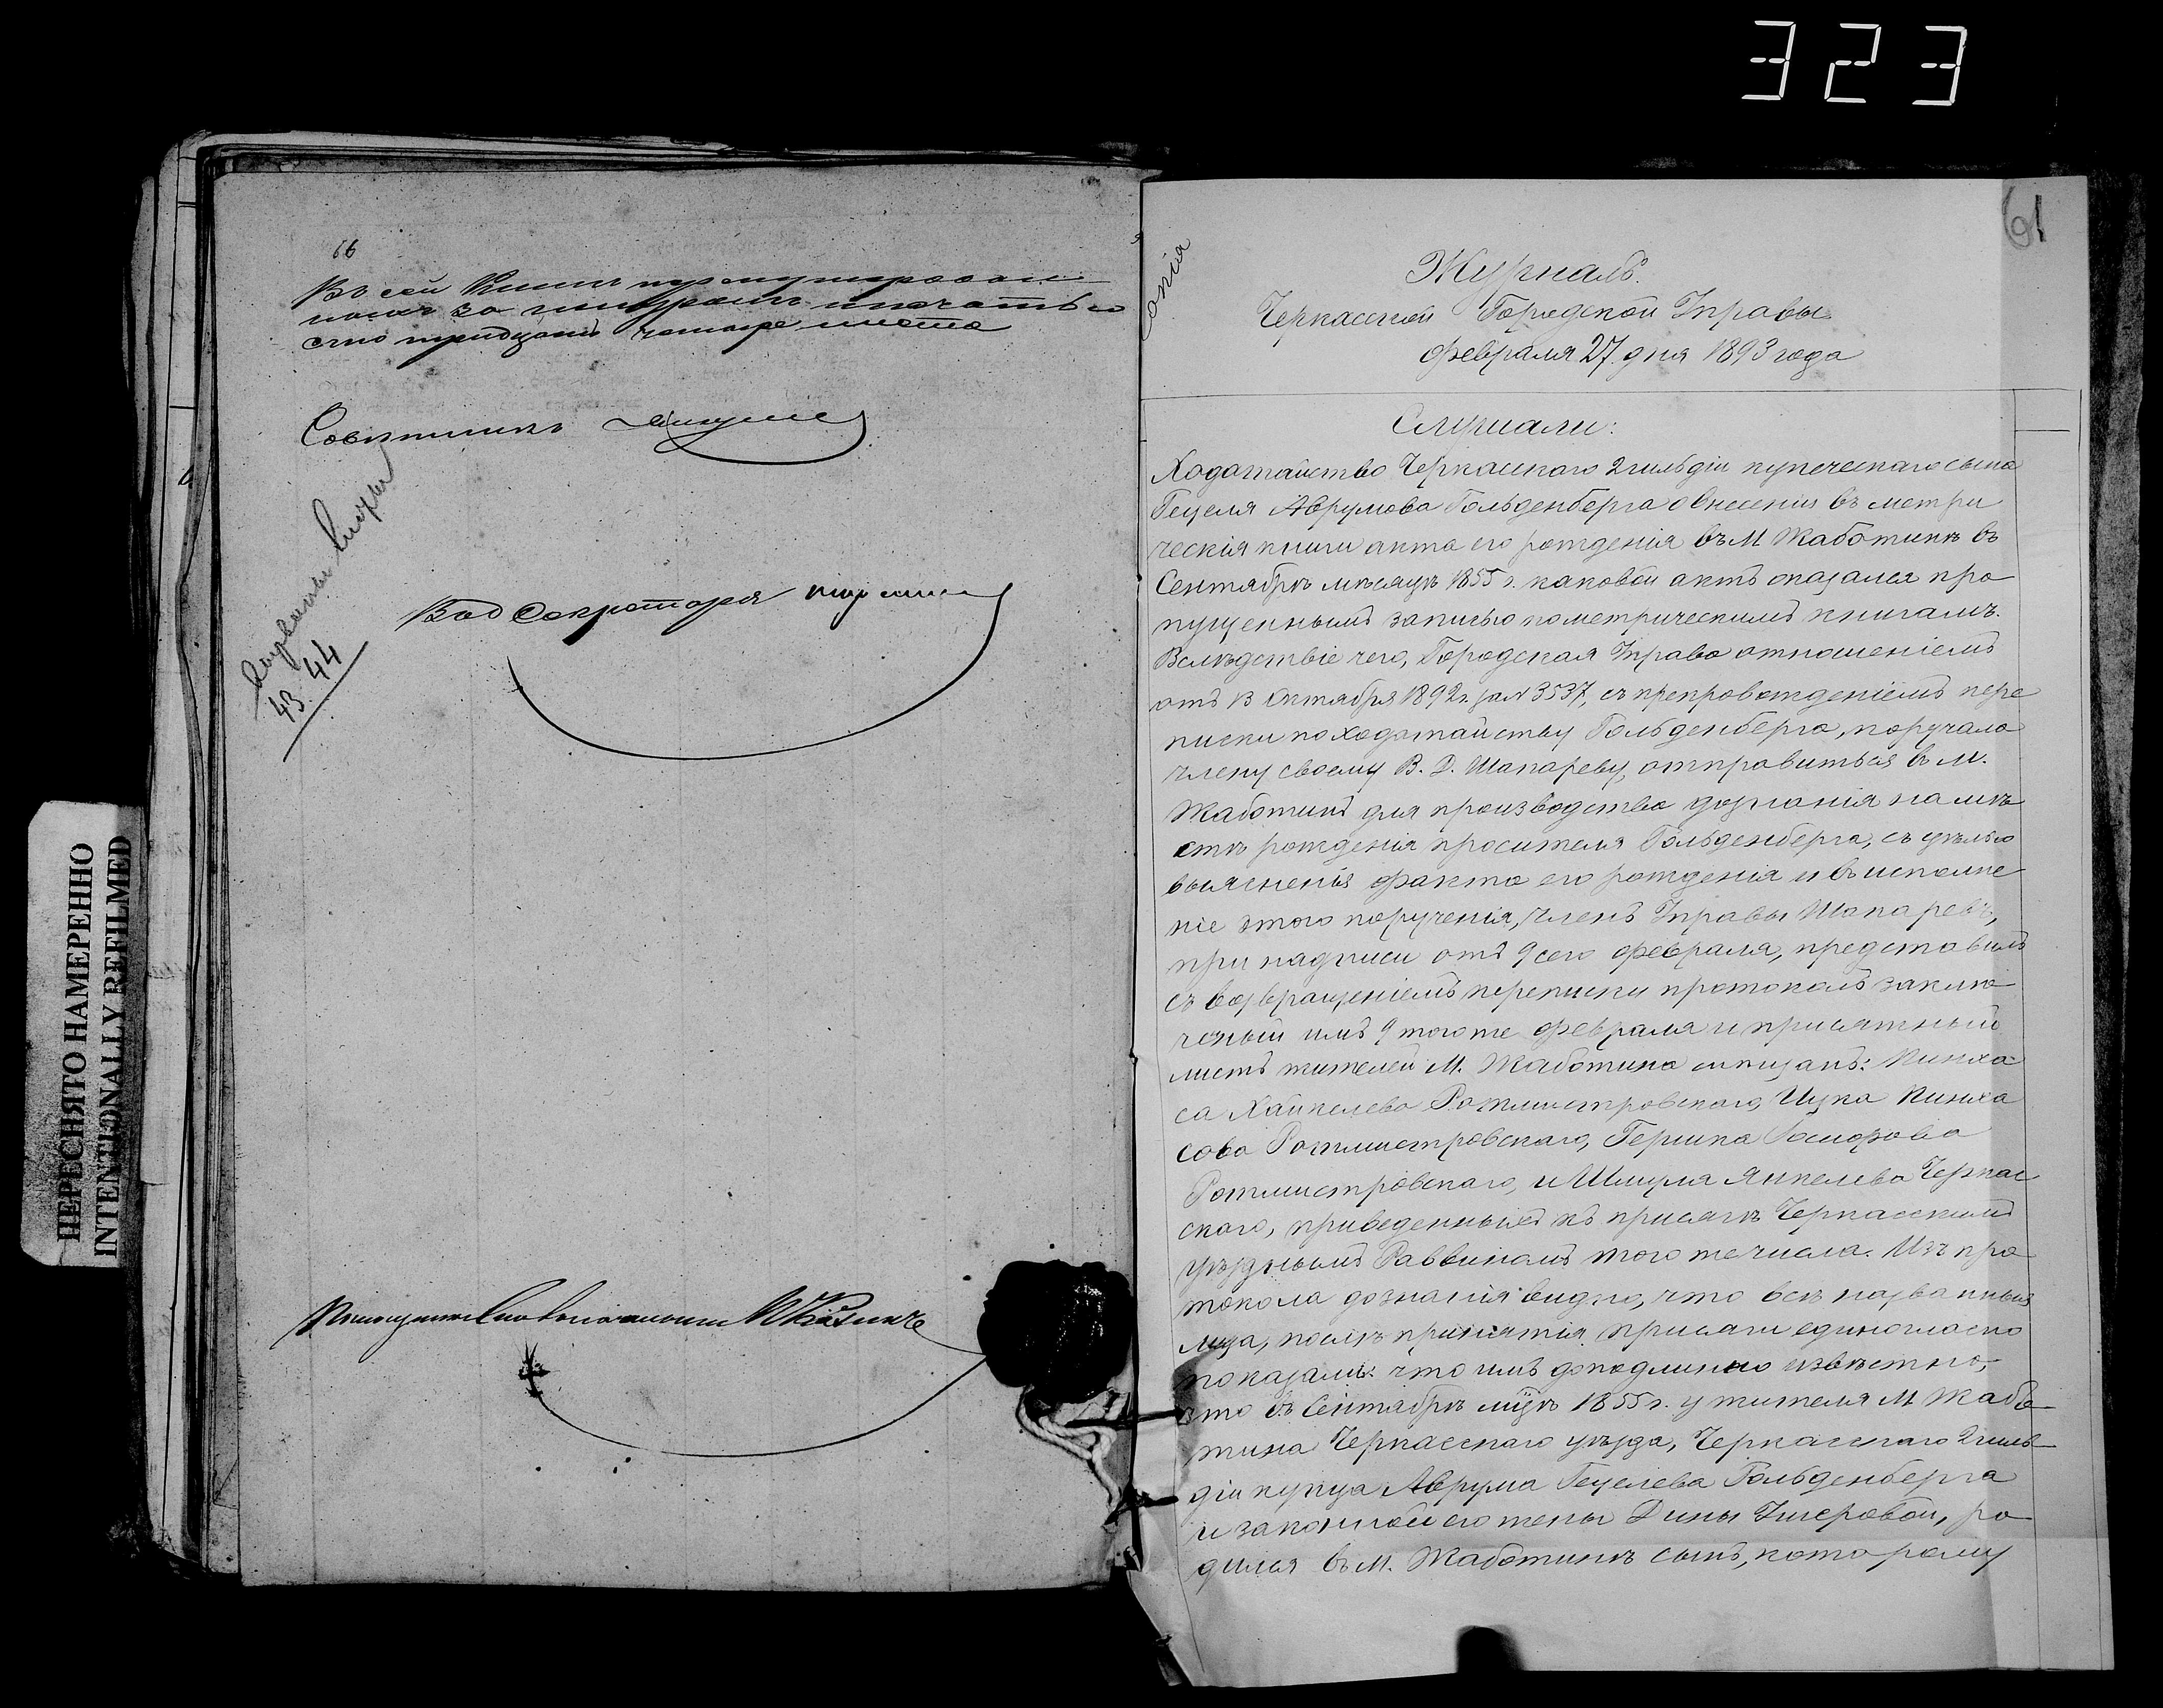 323
66
Въ сей Книгѣ пронумерован
ныхъ за шнуромъ и печатью
сто тридцать четыре листа
Совѣтникъ
43. 44
Вид Секретаря
ПЕРЕСНЯТО НАМЕРЕННО
INTENTIONALLY REFILMED
61
Копія
Журналъ.
Черкасской Городской Управы
Февраля 27 дня 1893 года
Слушали:
Ходатайство Черкасскаго 2 гильдіи купеческаго сына
Гецеля Аврумова Гольденберга о внесеніи въ метри
ческія книги акта его рожденія въ М Жаботинѣ въ
Сентябрѣ мѣсяцѣ 1855 г. каковой актъ оказался про
пущеннымъ записью по метрическимъ книгамъ.
Вслѣдствіе чего, Городская Управа отношеніемъ
отъ 13 Октября 1892 г. за № 3537, съ препровожденіемъ пере
писки по ходатайству Гольденберга, поручала
члену своему В. Д. Шапареву, отправиться въ м.
Жаботинъ для производства дознанія на мѣ
стѣ рожденія просителя Гольденберга, съ цѣлью
выясненія факта его рожденія и въ исполне
ніе этого порученія, членъ Управы Шапаревъ,
при надписи отъ 9 сего Февраля, представилъ
съ возвращеніемъ переписки протоколъ заклю
ченый имъ 9 того же Февраля и присяжный
листъ жителей М. Жаботина мѣщанъ: Пинха
са Хайкелева Ротмистровскаго, Ицка Пинха
сова Ротмистровскаго, Гершка
Ротмистровскаго, и Шмуля Янкелева Черкас
скаго, приведенныхъ къ присягѣ Черкасскимъ
уѣзднымъ Раввиномъ того же числа. Изъ про
токола дознанія видно, что всѣ названныя
лица, послѣ принятія присяги единогласно
показали: что имъ доподлинно извѣстно,
что въ Сентябрѣ мцѣ 1855 г. у жителя М Жабо
тина Черкасскаго уѣзда, Черкасскаго 2 гиль
діи купца Аврума Гецелева Гольденберга
и законной его жены Дины Ушеровой, ро
дился въ М. Жаботинѣ сынъ, которому